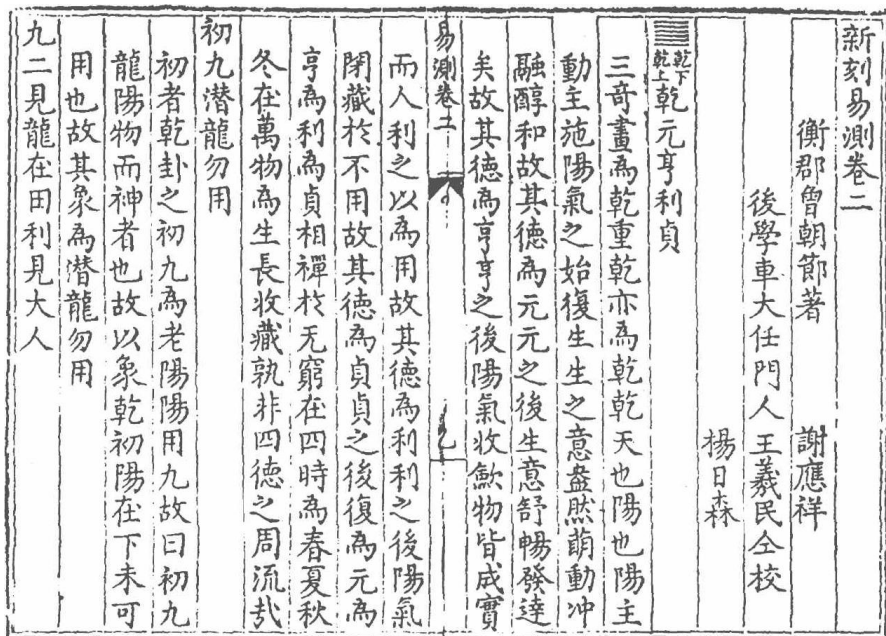 新刻易測卷二
衡郡曾朝節著　謝應祥
後學車大任門人王羲民仝校
楊日森
乾下乾上乾元亨利貞
三奇畫為乾重乾亦為乾乾天也陽也陽主
動主施陽氣之始復生生之意盎然萌動冲
融醇和故其德為元元之後生意舒暢發達
矣故其德為亨亨之後陽氣收歛物皆成實
易測卷二
一
而人利之以為用故其德為利利之後陽氣
閉藏於不用故其德為貞貞之後復為元為
亨為利為貞相禪於无窮在四時為春夏秋
冬在萬物為生長收藏孰非四德之周流㢤
初九潛龍勿用
初者乾卦之初九為老陽陽用九故曰初九
龍陽物而神者也故以象乾初陽在下未可
用也故其象為潛龍勿用
九二見龍在田利見大人